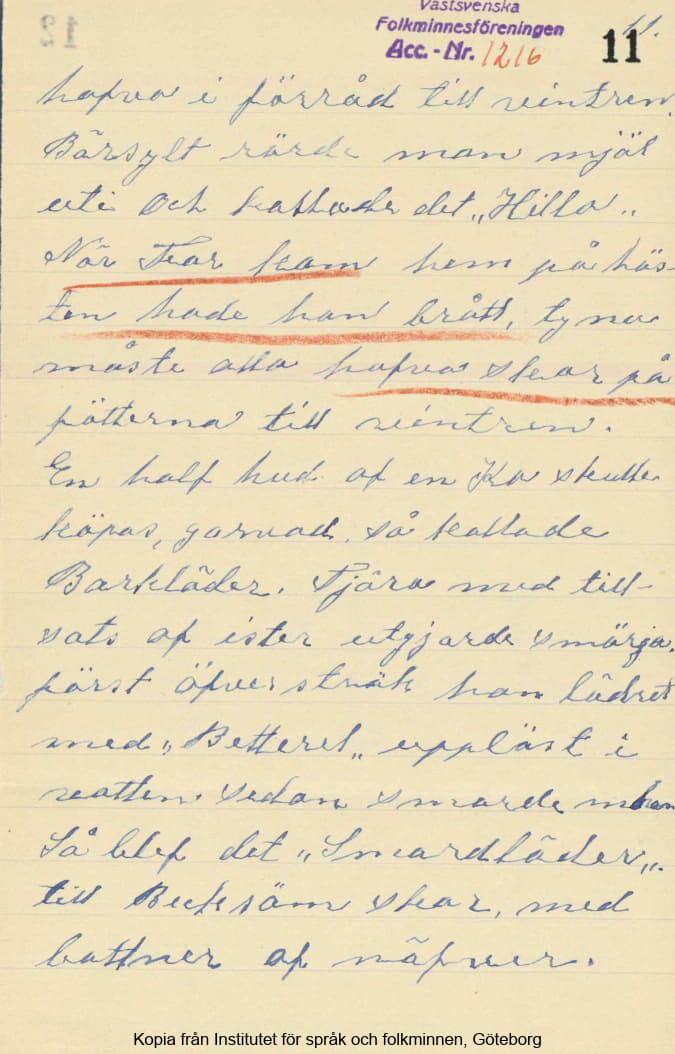 Västsvenska
Folkminnesföreningen
Acc. - Nr. 1216
11.
11
12
hafva i förråd till vintren.
Bärsylt rörde man mjöl
uti och kallade det „Hilla„
När Far kom hem på hös-
ten hade han brått, ty nu
måste alla hafva skor på
fötterna till vintren.
En half hud af en Ko skulle
köpas, garvad, så kallade
Barkläder. Tjära med till-
sats af ister utgjorde smörja.
först öfverströk han lädret
med „Betteret„ upplöst i
vatten sedan smorde han
Så blef det „Smordläder„.
till Becksöm skor, med
bottner af näfver.
Kopia från Institutet för språk och folkminnen, Göteborg